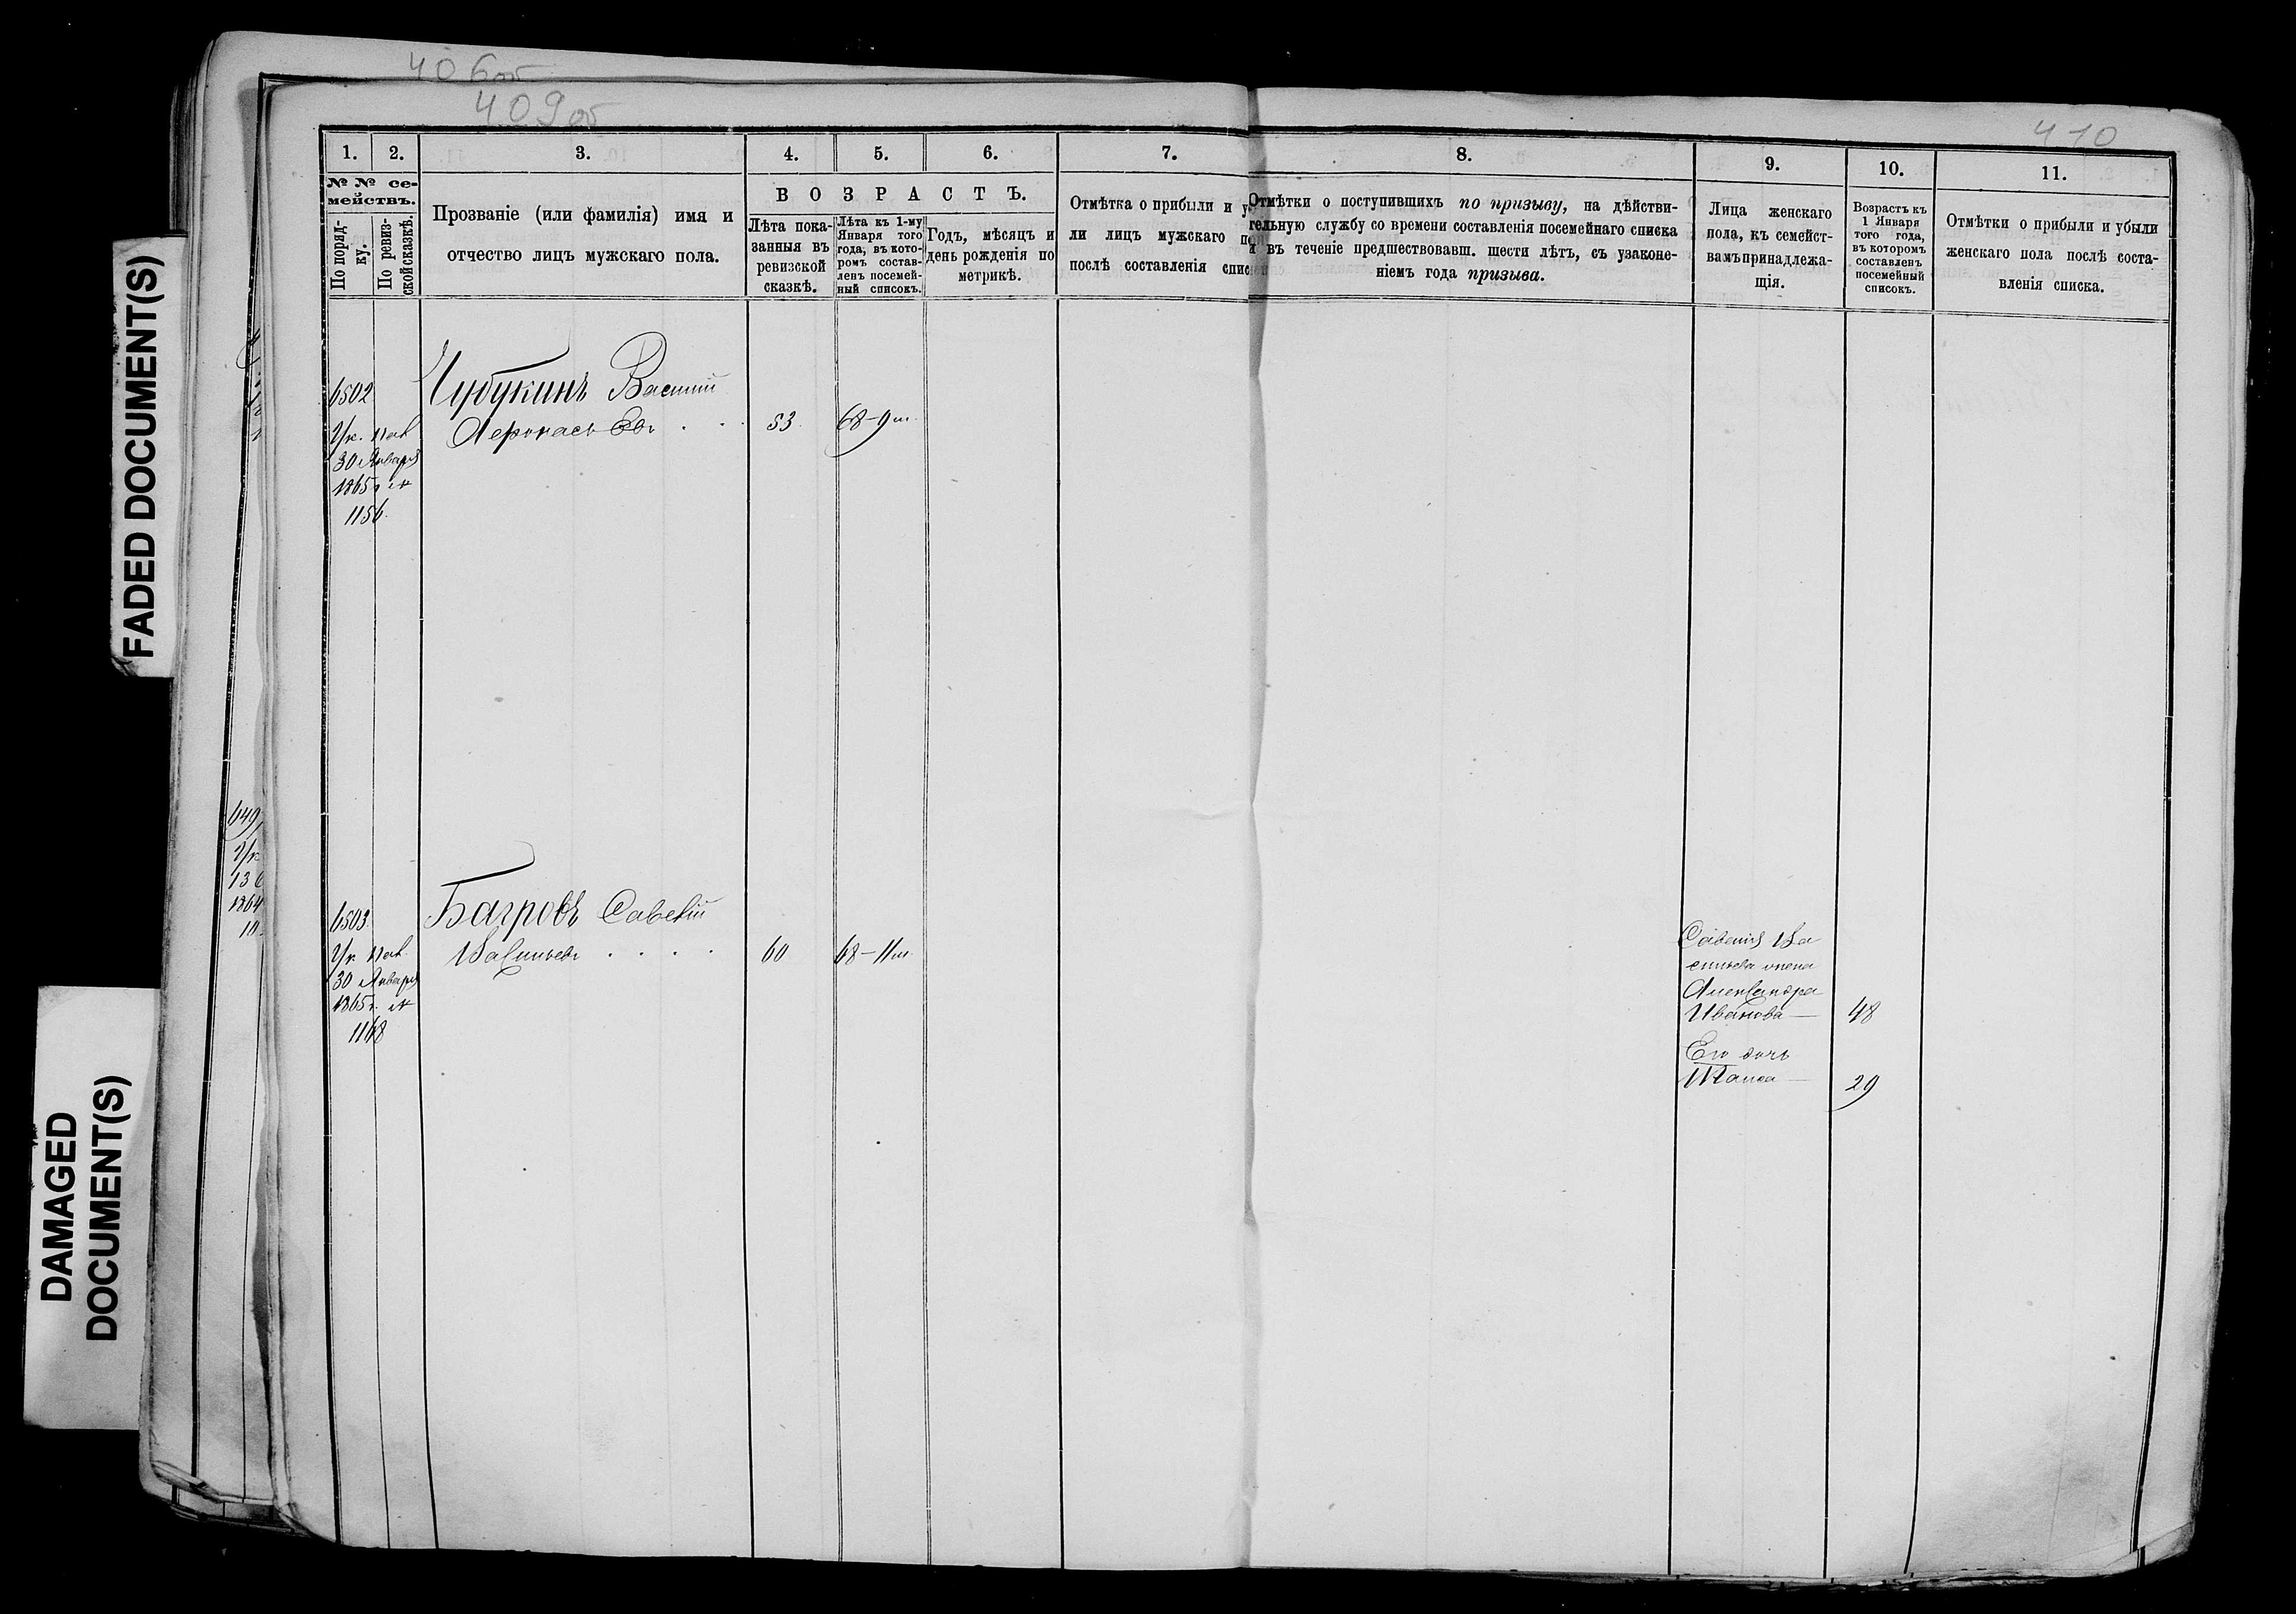 406об
409об
410
1. 2. 3. 4. 5. 6. 7. 8. 9. 10. 11.
№ № се-
мействъ.
По поряд-
ку.
По ревиз-
ской сказкѣ.
Прозваніе (или фамилія) имя и
отчество лицъ мужскаго пола.
ВОЗРАСТЪ.
Лѣта пока-
занныя въ
ревизской
сказкѣ.
Лѣта къ 1-му
Января того
года, въ кото-
ромъ состав-
ленъ посемей-
ный списокъ.
Годъ, мѣсяцъ и
день рожденія по
метрикѣ.
Отмѣтка о прибыли и у
ли лицъ мужскаго по
послѣ составленія спис
Отмѣтки о поступившихъ по призыву, на дѣйстви-
тельную службу со времени составленія посемейнаго списка
и въ теченіе предшествовавш. шести лѣтъ, съ узаконе-
ніемъ года призыва.
Лица женскаго
пола, къ семейст-
вамъ принадлежа-
щія.
Возрастъ къ
1 Января
того года,
въ которомъ
составленъ
посемейный
списокъ.
Отмѣтки о прибыли и убыли
женскаго пола послѣ соста-
вленія списка.
6502 Чубукинъ Василій
53 68-9м.
30 Января
1865г. №
1156.
6503 Багровъ Савелій
Васильевъ 60 68-11м.
30 Января
1865г. №
1168
Савелія Ва
сильева жена
Александра
Иванова 48
Его дочь
29
649
1864
FADED DOCUMENT(S)
DAMAGED
DOCUMENT(S)